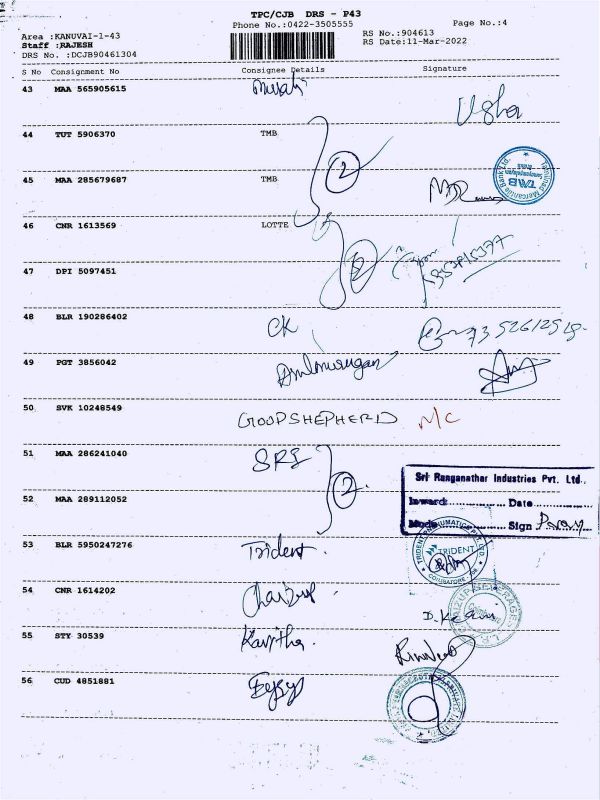 TPC/CJB DRS - P43
Phone No.:0422-3505555
Page No.:4
Area :KANUVAI-1-43
RS No.:904613
Staff :RAJESH
RS Date:11-Mar-2022
DRS No. :DCJB90461304
S No Consignment No Consignee Details Signature
43 MAA 565905615 Murali Usha
44 TUT 5906370 TMB
2
45 MAA 285679687 TMB
Tamilnad Mercantile Bank Ltd.
TMB
46 CNR 1613569 LOTTE
2
47 DPI 5097451
48 BLR 190286402 CK
49 PGT 3856042
50 SVK 10248549 GOODSHEPHERD N/C
51 MAA 286241040 SRI
2
Sri Ranganathar Industries Pvt. Ltd.
52 MAA 289112052
Inward Date
Mode Sign
53 BLR 5950247276 Trident
TRIDENT PNEUMATICS PVT. LTD.
TRIDENT
COIMBATORE
54 CNR 1614202
55 STY 30539 Kavitha
56 CUD 4851881